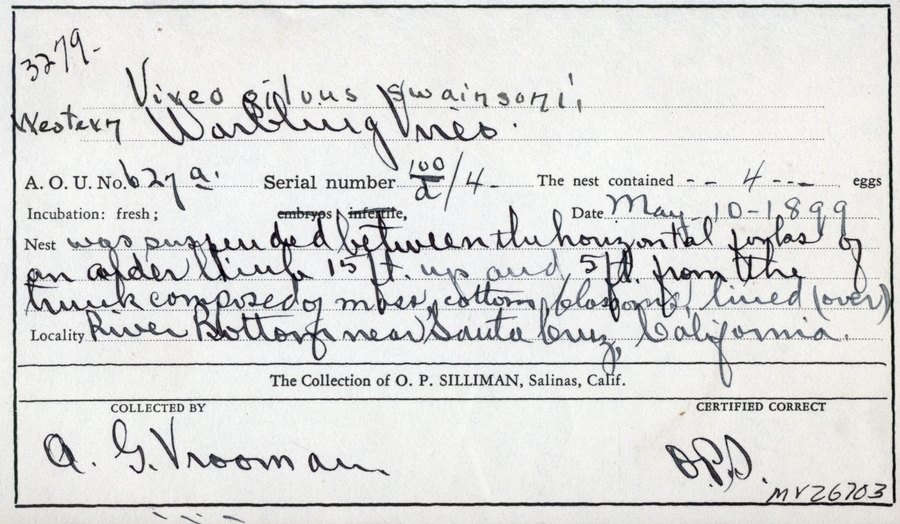 3279-
Vireo gilvus swainsoni,
Western Warbling Vireo.
A. O. U. No. 627a. Serial number 100/d/4- The nest contained -- 4 --- eggs
Incubation: fresh; embryos infertile, Date May-10-1899
Nest was suspended between the horizontal forks of
an alder limb 15 ft. up and 5 ft. from the
trunk composed of moss, cottom blossoms, lined (over)
Locality River Bottom near Santa Cruz, California.
The Collection of O. P. SILLIMAN, Salinas, Calif.
COLLECTED BY CERTIFIED CORRECT
A. G. Vrooman. O.P.S.
MV26703